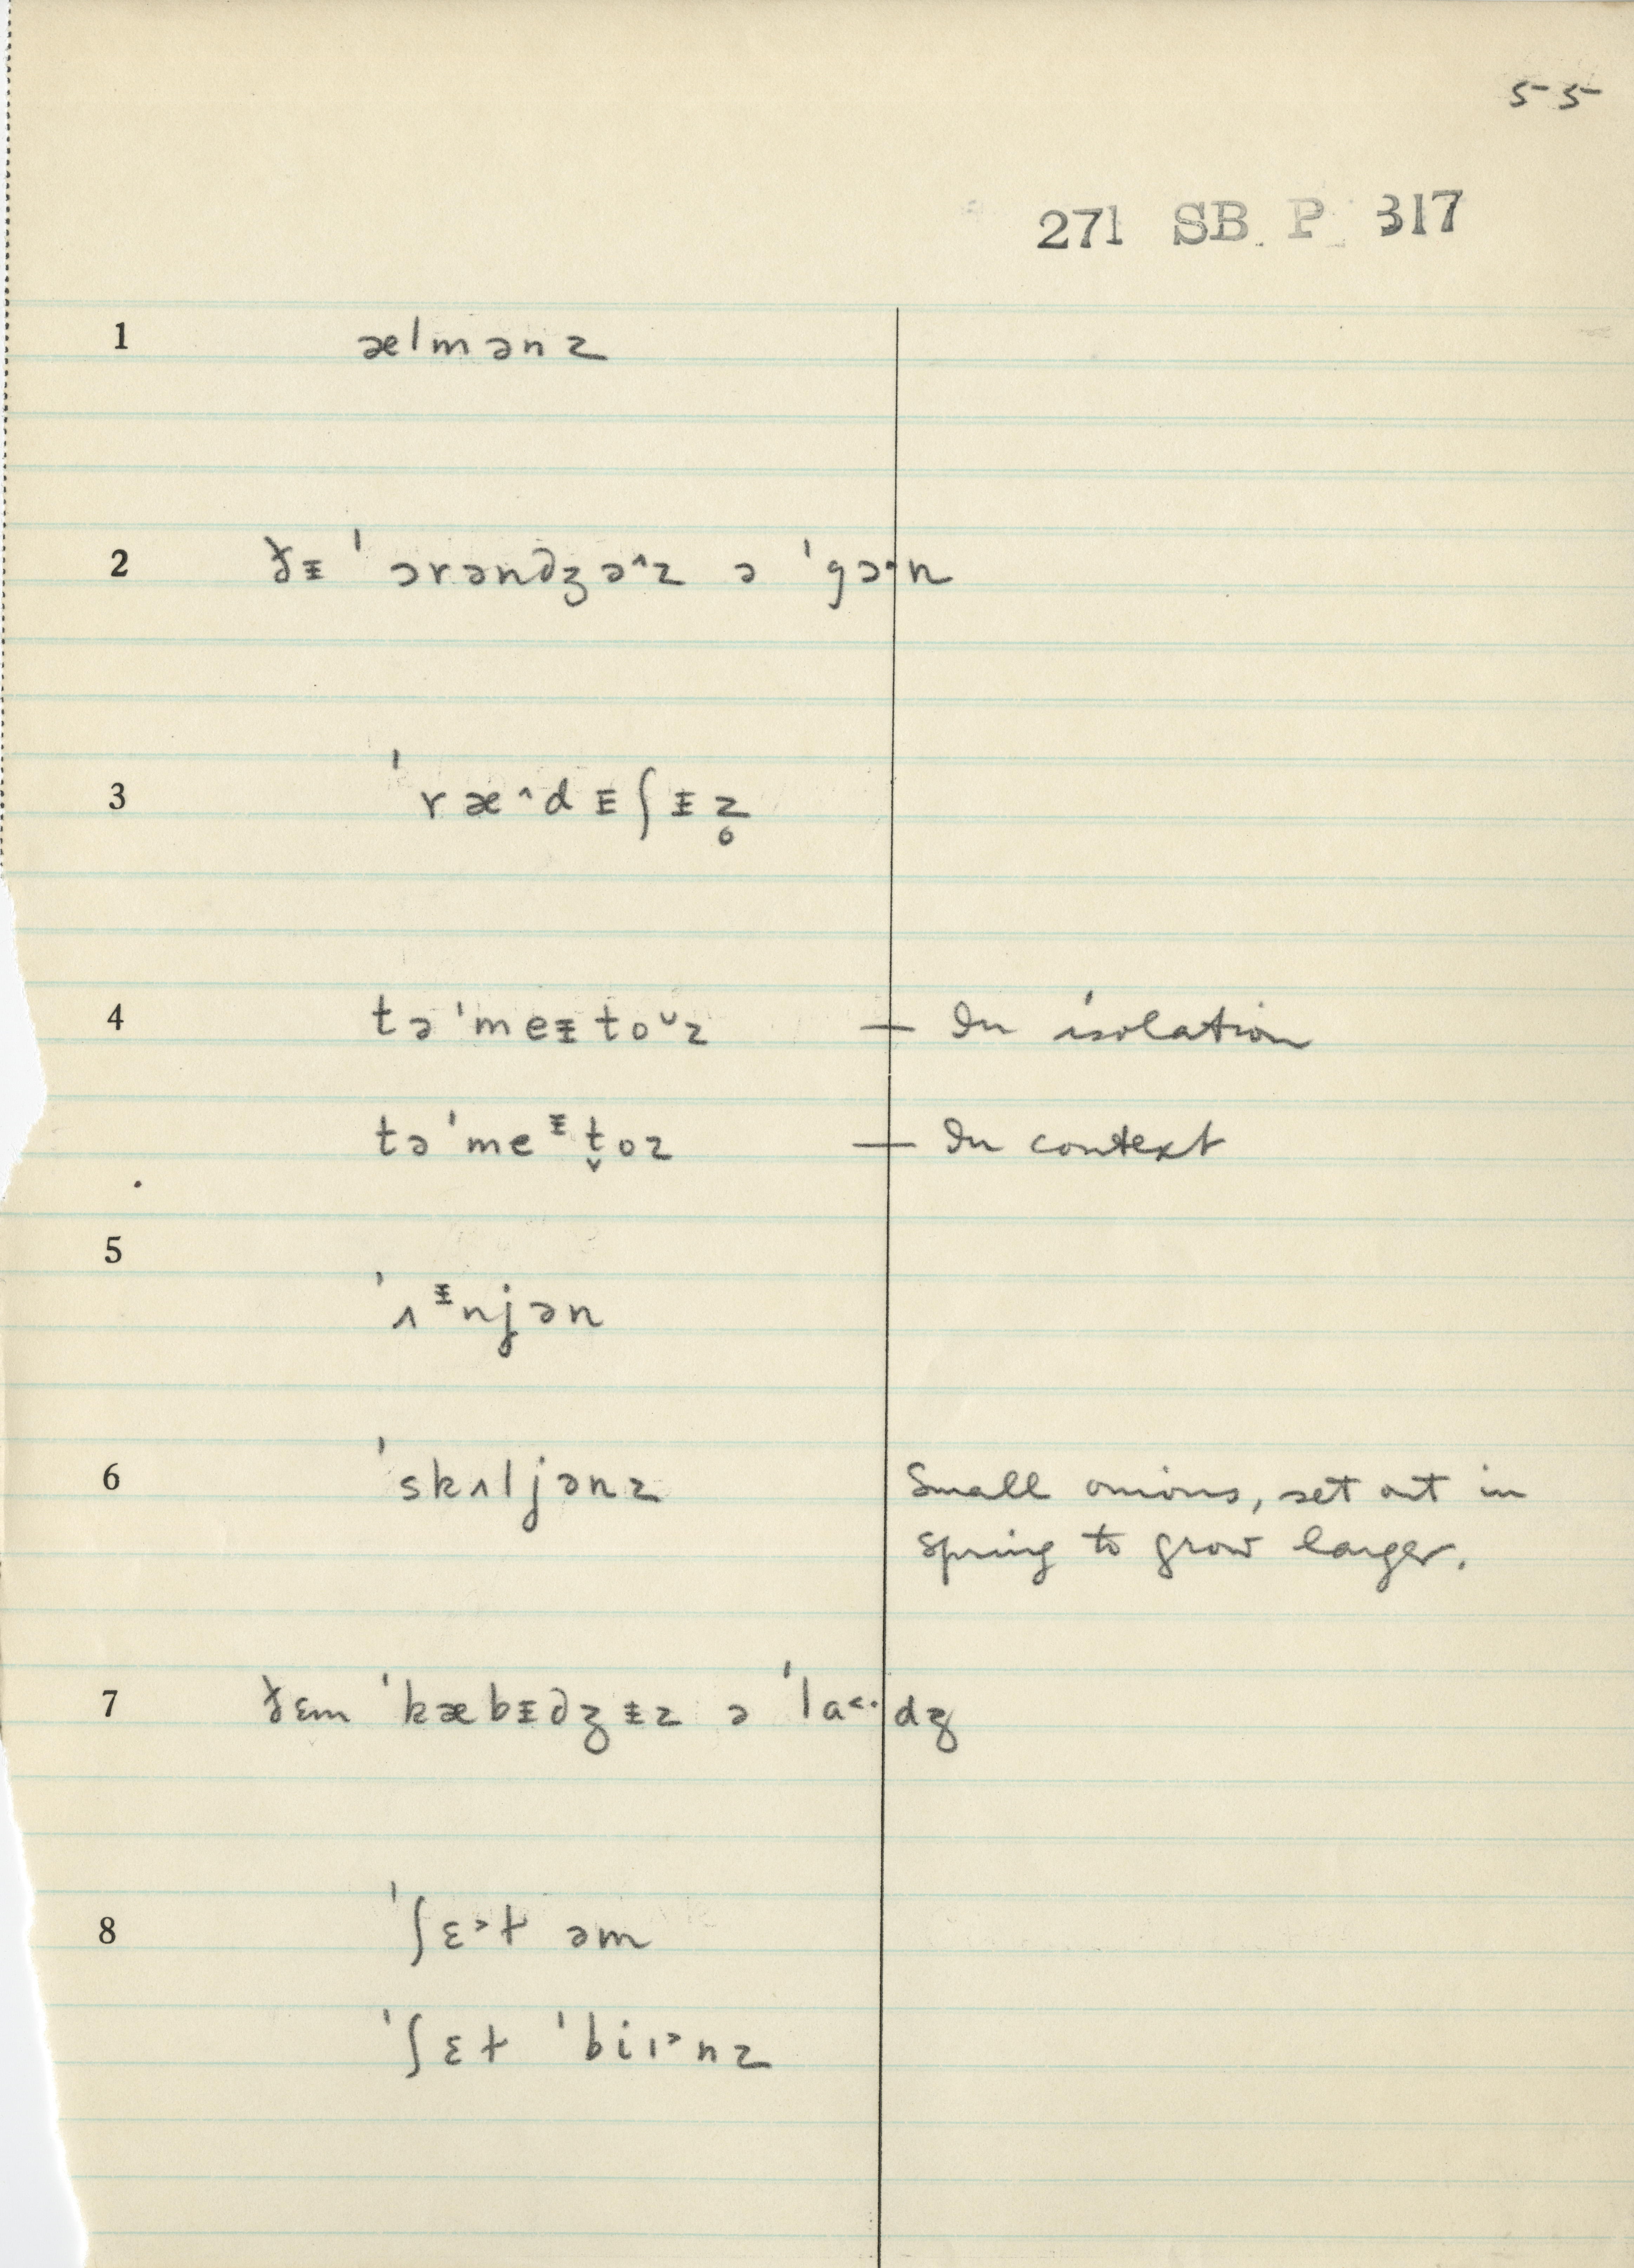 55
271 SB P 317
1 ælmənz
2 ðɪ̵ ˈɔrəndʒə^z ə ˈgɔ·n
3 ˈræ^dɪ̵ʃɪ̵z̥
4 təˈmeɪ̵to˅z — In isolation
təˈmeᶧt̬oz — In context
5 ˈʌᶧnjən
6 ˈskʌljənz Small onions, set out in
spring to grow larger.
7 ðɛm ˈkæbɪ̵dʒɪ̵z ə ˈla˂·dʒ
8 ˈʃɛ˃ɫ əm
ˈʃɛɫ ˈbiɪ˃nz